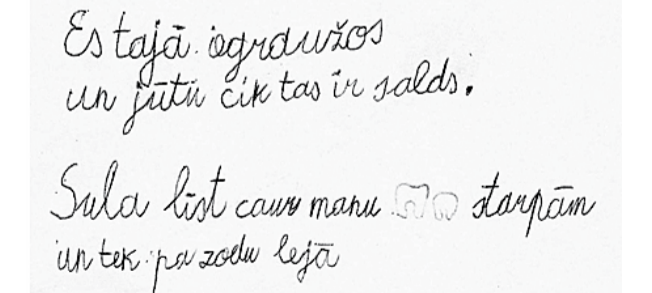 Es tajā iegraužos
un jūtu cik tas ir salds.
Sula līst caur manu starpām
un tek pa zodu lejā